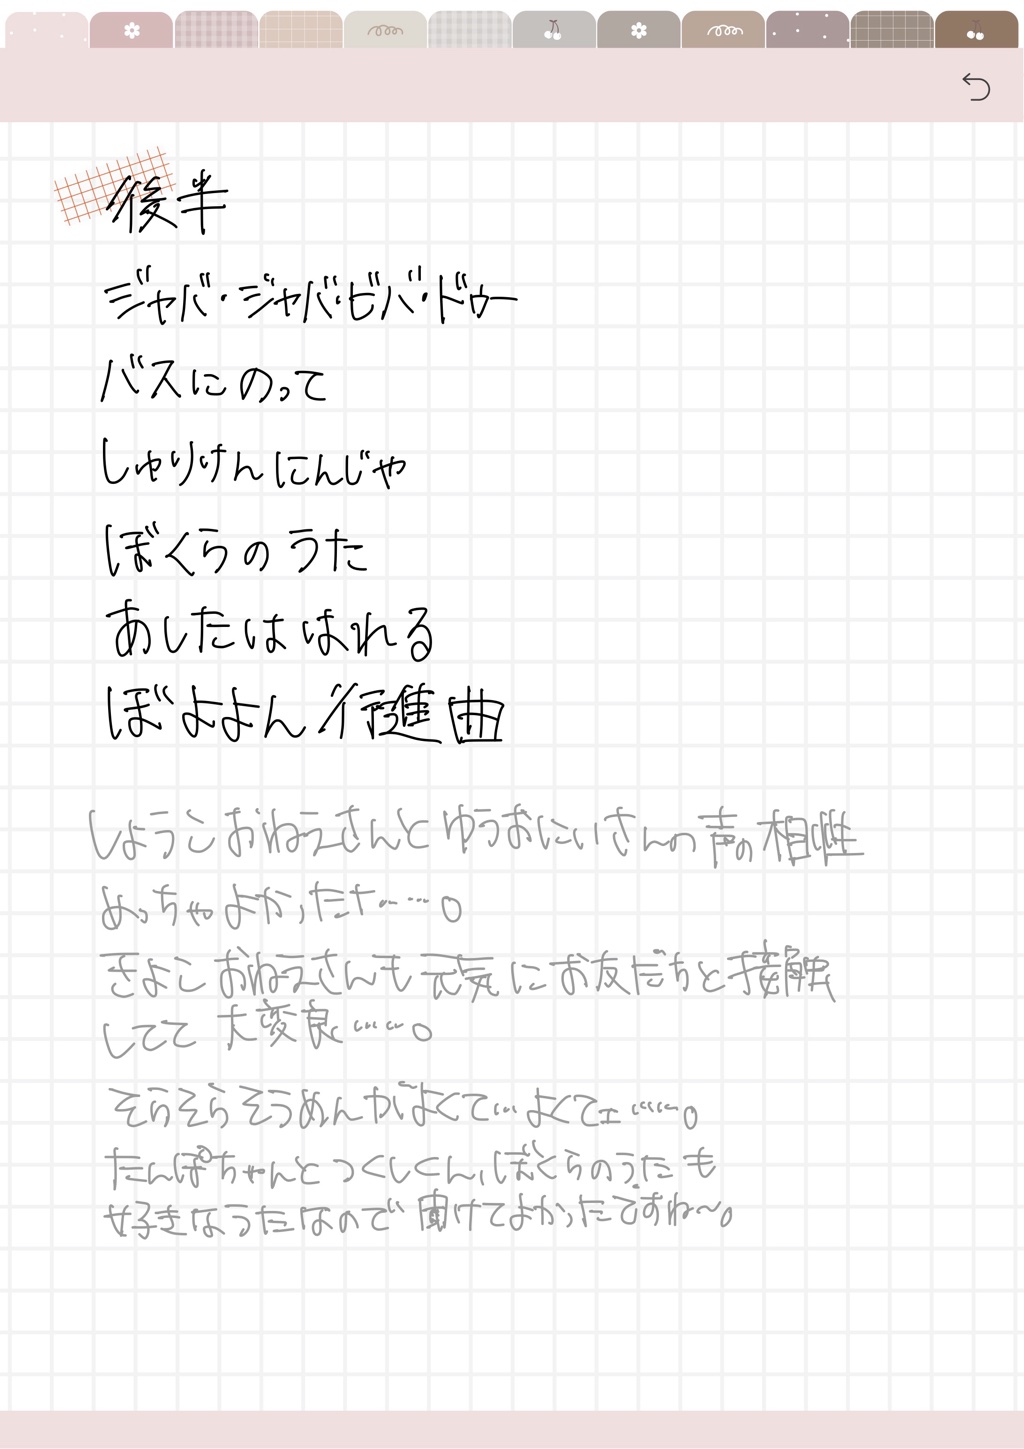 後半
ジャバ・ジャバ・ビバ・ドゥー
バスにのって
しゅりけんにんじゃ
ぼくらのうた
あしたははれる
ぼよよん行進曲
しょうこおねえさんとゆうおにいさんの声の相性
めっちゃよかったナ……。
きよこおねえさんも元気にお友だちと接触
してて大変良……。
そらそらそうめんがよくて…よくてェ……。
たんぽちゃんとつくしくん、ぼくらのうたも
好きなうたなので聞けてよかったですね〜。